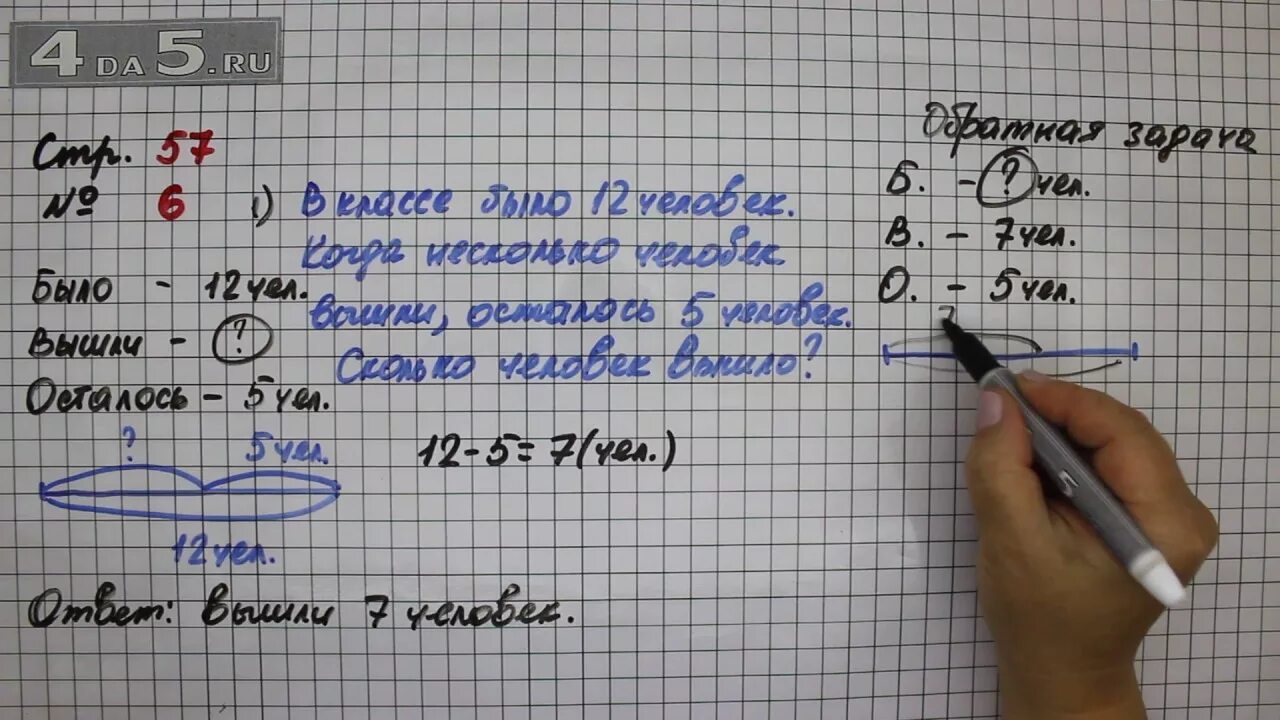 4DA5.RU
Стр. 57
№ 6
1) В классе было 12 человек.
Когда несколько человек
вышли, осталось 5 человек.
Сколько человек вышло?
Было - 12 чел.
Вышли - ?
Осталось - 5 чел.
? 5 чел.
12 чел.
12-5=7(чел.)
Ответ: вышли 7 человек.
Обратная задача
Б. - ? чел.
В. - 7 чел.
О. - 5 чел.